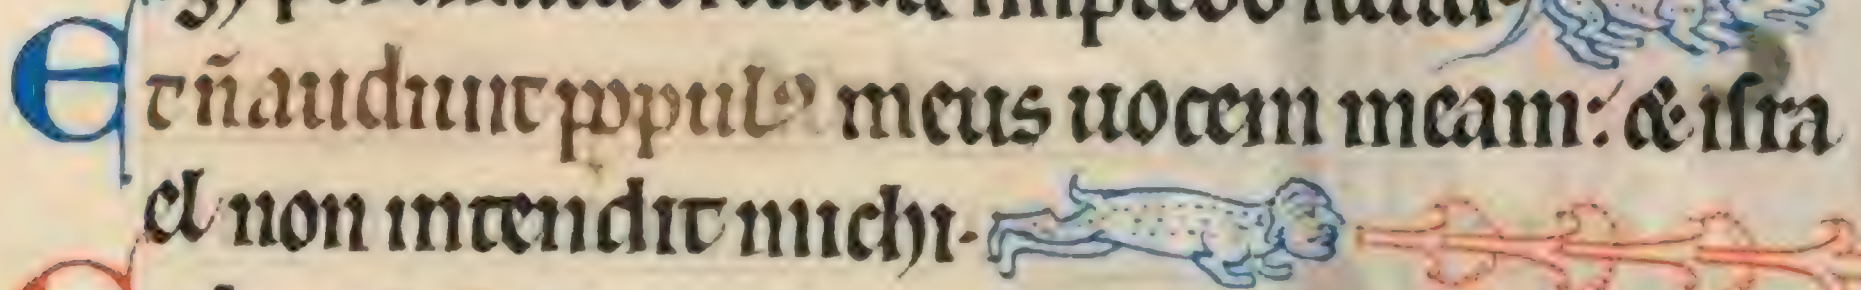 Et ñ audiuit ppulꝰ meus uocem meam: & isra
el non intendit michi.